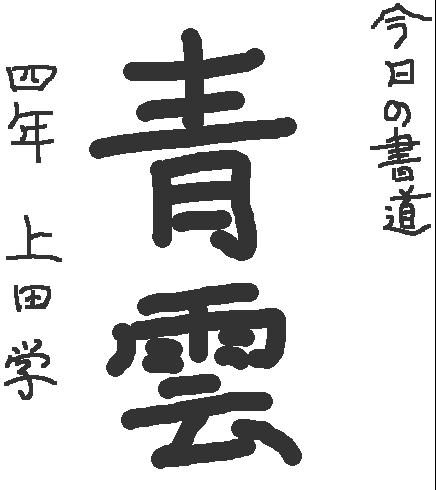 今日の書道
青雲
四年 上田学